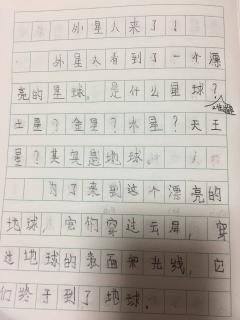 外星人来了!
外星人看到了一个漂
亮的星球。是什么星球?
土星?金星?水星?天王
星?其实是地球。
为了来到这个漂亮的
地球,它们穿过云层,穿
过地球的表面和光线,它
们终于到了地球。